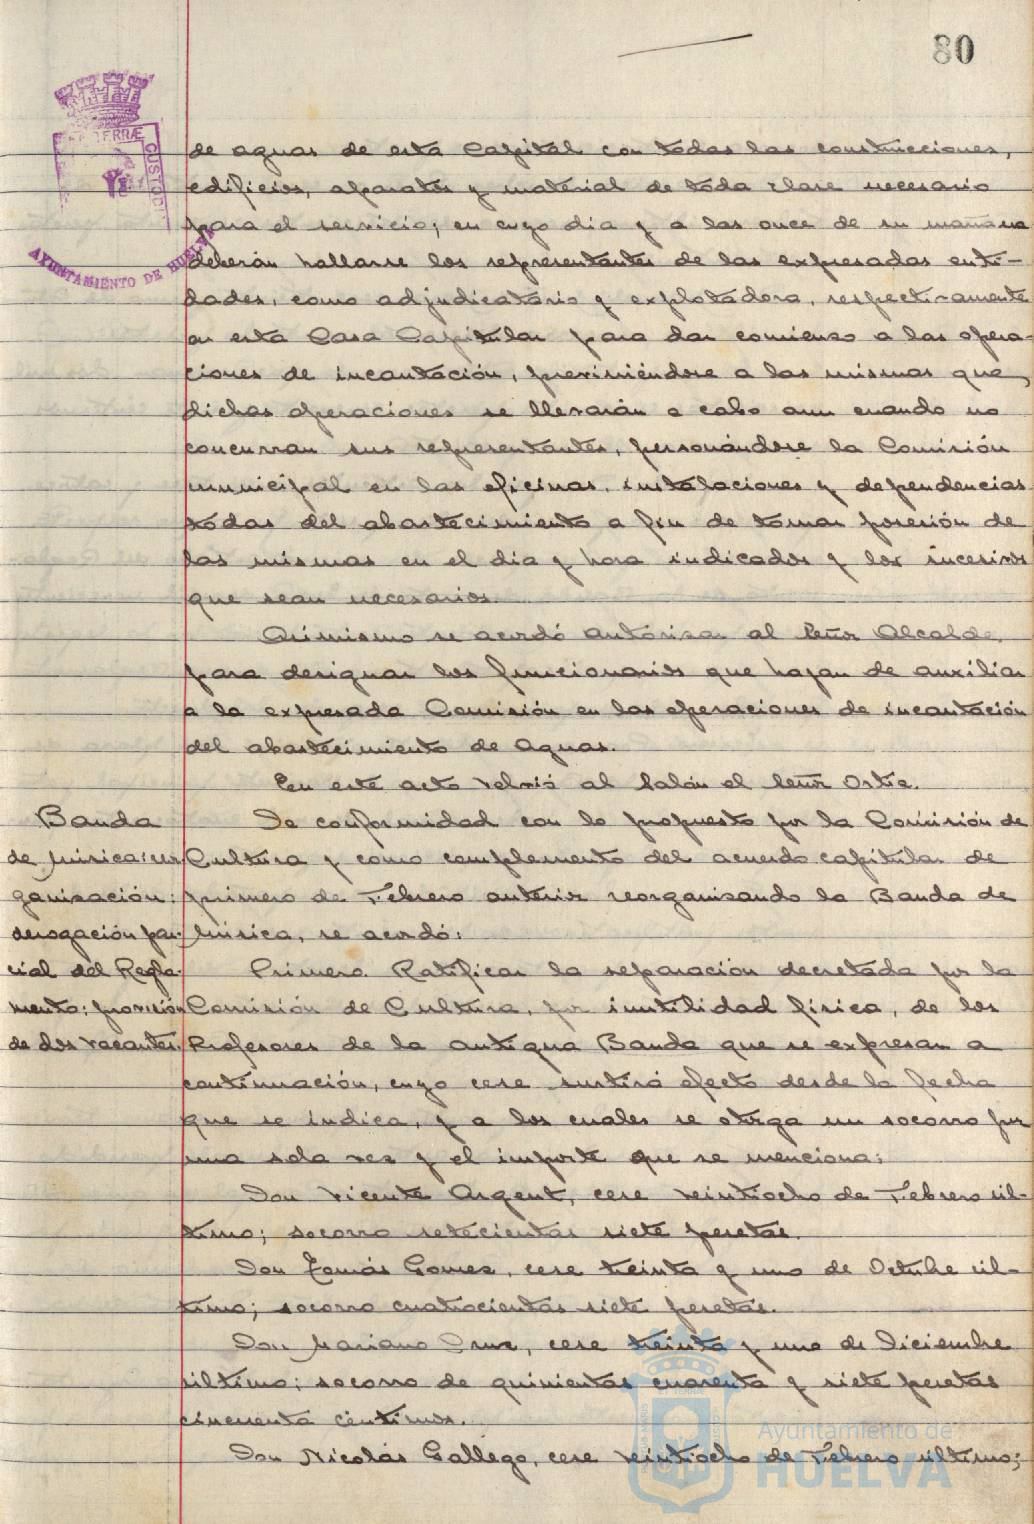 80
TERRÆ
CUSTOD
AYUNTAMIENTO DE HUELVA
de aguas de esta Capital con todas las construcciones,
edificios, aparatos y material de toda clase necesario
para el servicio; en cuyo dia y a las once de su mañana
deberán hallarse los representantes de las expresadas enti-
dades, como adjudicatario y explotadora, respectivamente
en esta Casa Capitular para dar comienzo a las opera-
ciones de incautación, previniéndose a las mismas que,
dichas operaciones se llevarán a cabo aun cuando no
concurran sus representantes, personándose la Comisión
municipal en las oficinas, instalaciones y dependencias
todas del abastecimiento a fin de tomar posesión de
las mismas en el dia y hora indicados y los sucesivos
que sean necesarios.
Asimismo se acordó autorizar al Señor Alcalde
para designar los funcionarios que hayan de auxiliar
a la expresada Comisión en las operaciones de incautación
del abastecimiento de Aguas.
En este acto volvió al Salón el Señor Ortiz.
Banda
de Música: reor
ganización:
derogación par-
cial del Regla-
mento; provisión
de dos vacantes.
De conformidad con lo propuesto por la Comisión de
Cultura y como complemento del acuerdo capitular de
primero de Febrero anterior reorganizando la Banda de
Música, se acordó:
Primero. Ratificar la separación decretada por la
Comisión de Cultura, por inutilidad física, de los
Profesores de la antigua Banda que se expresan a
continuación, cuyo cese surtirá efecto desde la fecha
que se indica, y a los cuales se otorga un socorro por
una sola vez y el importe que se menciona:
Don Vicente Argent, cese veintiocho de Febrero úl-
timo; socorro setecientas siete pesetas.
Don Tomás Gomez, cese treinta y uno de Octubre úl-
timo; socorro cuatrocientas siete pesetas.
Don Mariano Cruz, cese treinta y uno de Diciembre
último; socorro de quinientas cuarenta y siete pesetas
cincuenta céntimos.
Don Nicolás Gallego, cese veintiocho de Febrero último;
Ayuntamiento de
HUELVA